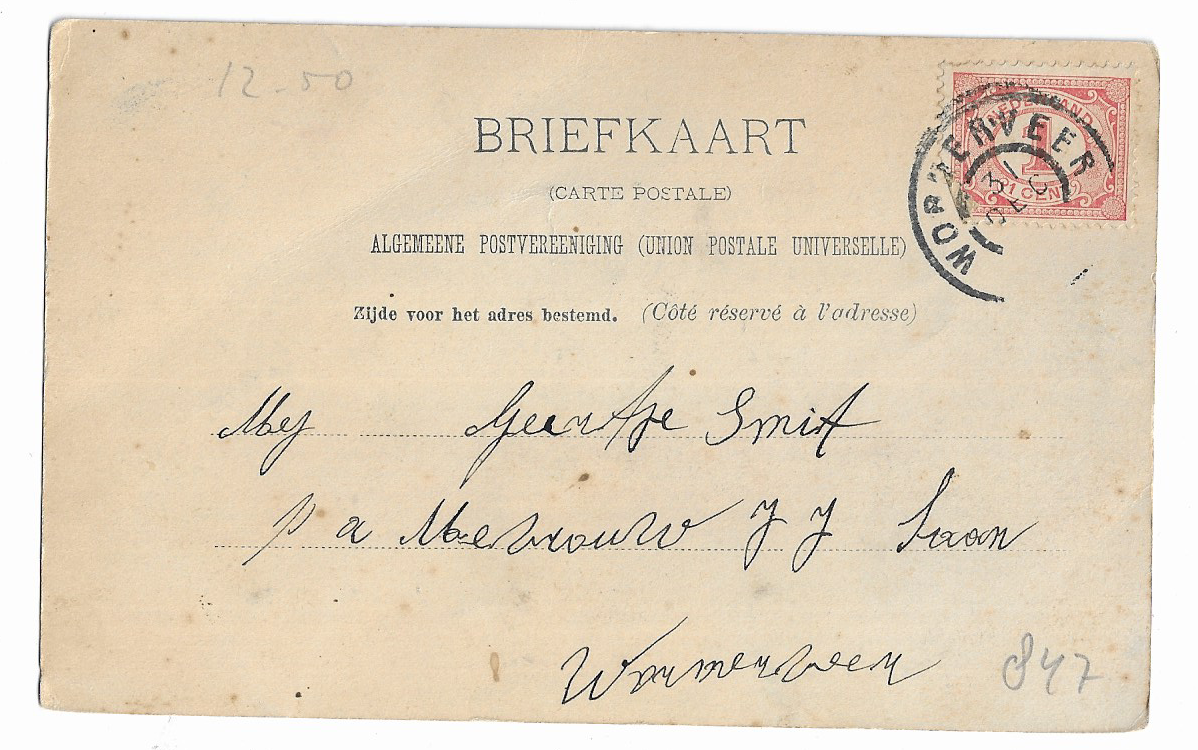 12-50
BRIEFKAART
(CARTE POSTALE)
ALGEMEENE POSTVEREENIGING (UNION POSTALE UNIVERSELLE)
Zijde voor het adres bestemd. (Côté réservé à l'adresse)
NEDERLAND
1
1 CENT
WORMERVEER
31
DEC
Mej Geertje Smit
p a Mevrouw J J Saan
Wormerveer
847